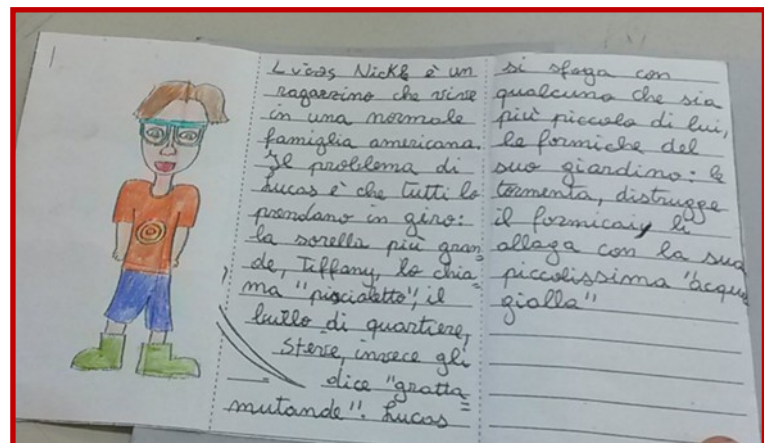 1
Lucas Nickle è un
ragazzino che vive
in una normale
famiglia americana.
Il problema di
Lucas è che tutti lo
prendano in giro:
la sorella più gran=
de, Tiffany, lo chia=
ma "piscialetto", il
bullo di quartiere,
Steve, invece gli
dice "gratta=
mutande". Lucas
si sfoga con
qualcuno che sia
più piccolo di lui,
le formiche del
suo giardino: le
tormenta, distrugge
il formicaiy li
allaga con la sua
piccolissima "acqua
gialla"